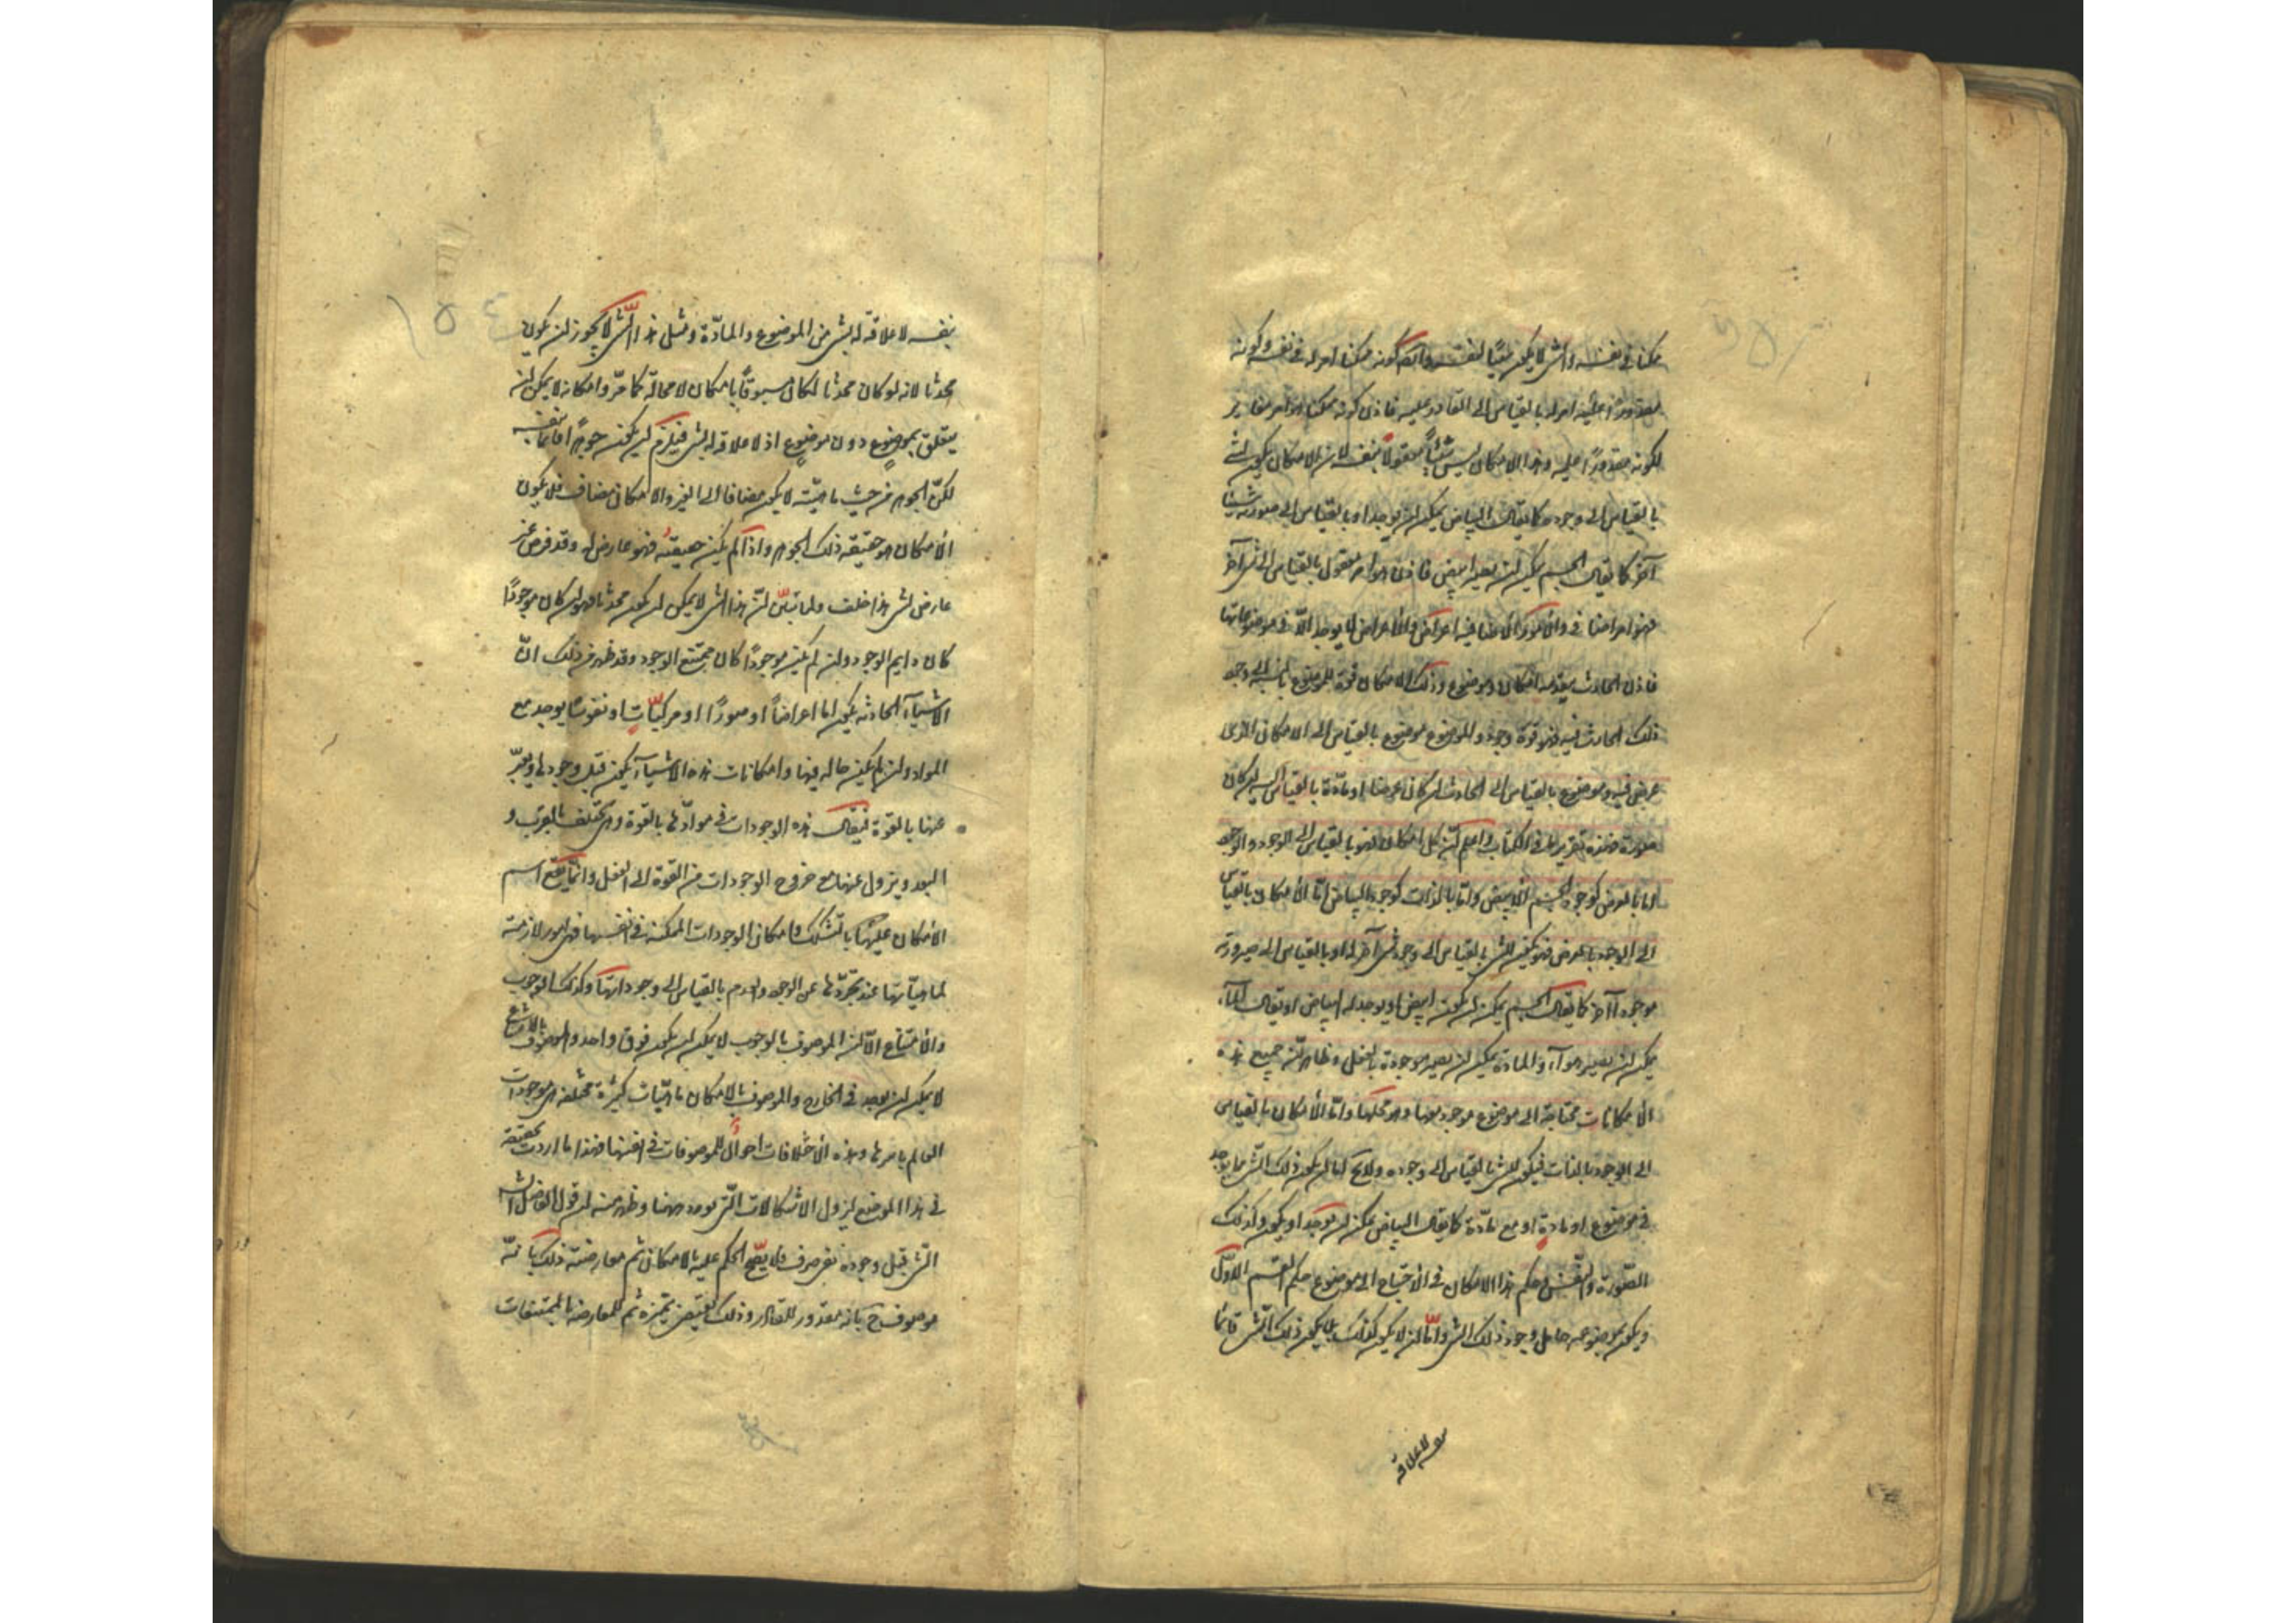 ممكنا فى نفسه والشى لا يكون سببا لنفسه وايضا كونه ممكنا امر له فى نفسه وكونه
مقدورا عليه امر له بالقياس الى القادر عليه فاذن كونه ممكنا هو امر مغاير
لكونه مقدورا عليه وهذا الامكان ليس شيئا معقولا بنفسه لان الامكان يكون لشى
بالقياس الى وجوده كما يقال البياض يمكن ان يوجد او بالقياس الى صيرورته شيئا
آخر كما يقال الجسم يمكن ان يصير ابيض فاذن هو امر معقول بالقياس الى شى آخر
فهو امر اضافى والامور الاضافيه اعراض والاعراض لا يوجد الا فى موضوعاتها
فاذن الحادث يتقدمه امكان وموضوع وذلك الامكان قوة للموضوع بالنسبة الى وجود
ذلك الحادث فيه فهو قوة وجود والموضوع موضوع بالقياس الى الامكان الذى
عرض فيه وموضوع بالقياس الى الحادث ان كان عرضا او مادة بالقياس اليه ان كان
صورة فهذه تقرير ما فى الكتاب واعلم ان كل امكان فهو بالقياس الى الوجود والوجود
اما بالعرض كوجود الجسم الابيض واما بالذات كوجود البياض اما الامكان بالقياس
الى الوجود بالعرض فهو يكون للشى بالقياس الى وجود شى آخر له او بالقياس الى صيرورته
موجودا آخر كما يقال الجسم يمكن ان يكون ابيض او يوجد له البياض او يقال الماء
يمكن ان يصير هواء والمادة يمكن ان يصير موجودة بالفعل وظاهر ان جميع هذه
الامكانات محتاجة الى موضوع موجود معها وهو محلها واما الامكان بالقياس
الى الوجود بالذات فيكون للشى بالقياس الى وجوده ولا يخ اما ان يكون ذلك الشى مما يوجد
فى موضوع او مادة او مع مادة كما يقال البياض يمكن ان يوجد او يكون وكذلك
الصورة والنفس وحكم هذا الامكان فى الاحتياج الى موضوع حكم القسم الاول
ويكون موضوعه حامل وجود ذلك الشى واما ان لا يكون كذلك بل يكون ذلك الشى قائما
بنفسه لا علاقة
بنفسه لا علاقة له بشى من الموضوع والمادة ومثل هذا الشى لا يجوز ان يكون
محدثا لانه لو كان محدثا لكان مسبوقا بامكان لا محالة كما مر وامكانه لا يمكن ان
يتعلق بموضوع دون موضوع اذ لا علاقة له بشى فيلزم ان يكون جوهرا قائما بنفسه
لكن الجوهر من حيث ماهيته لا يكون مضافا الى الغير والامكان مضاف فلا يكون
الامكان هو حقيقة ذلك الجوهر واذا لم يكن حقيقته فهو عارض له وقد فرض غير
عارض لشى هذا خلف ولما تبين ان هذا الشى لا يمكن ان يكون محدثا فهو ان كان موجودا
كان دايم الوجود وان لم يكن موجودا كان ممتنع الوجود وقد ظهر من ذلك ان
الاشياء الحادثه يكون اما اعراضا او صورا او مركبات او نفوسا يوجد مع
المواد وان لم يكن حالة فيها وامكانات هذه الاشياء يكون قبل وجودها ويعبر
عنها بالقوة فيقال هذه الوجودات فى موادها بالقوة وهى تختلف بالقرب و
البعد ويزول عنها مع خروج الوجودات من القوة الى الفعل وانما يقع اسم
الامكان عليها بالتشكك وامكان الوجودات الممكنه فى انفسها فهى امور لازمة
لماهياتها عند تجردها عن الوجود والعدم بالقياس الى وجوداتها وكذلك الوجوب
والامتناع الا ان الموصوف بالوجوب لا يمكن ان يكون فوق واحد والموصوف بالامتناع
لا يمكن ان يوجد فى الخارج والموصوف بالامكان ماهيات كثيرة مختلفه هى موجودات
العالم باسرها وهذه الاختلافات احوال للموصوفات فى انفسها فهذا ما اردت تحقيقه
فى هذا الموضع ليزول الاشكالات التى تورد ههنا وظهر منه ان قول الفاضل الشارح
الشى قبل وجوده نفى صرف فلا يصح الحكم عليه بالامكان ثم معارضته ذلك بانه
موصوف ح بانه مقدور للقادر وذلك يقتضى تميزه ثم المعارضه بالممتنعات